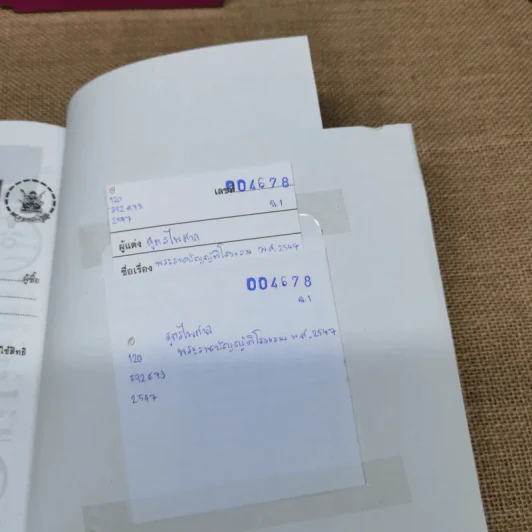 ก
120
ส92ค73
2547
เลขที่ 004678
ฉ.1
ผู้แต่ง สูตรไพศาล
ชื่อเรื่อง พระราชบัญญัติโรงแรม พ.ศ. 2547
004678
ฉ.1
สูตรไพศาล
พระราชบัญญัติโรงแรม พ.ศ. 2547
120
2547
ผู้ซื้อ
ใช้สิทธิ